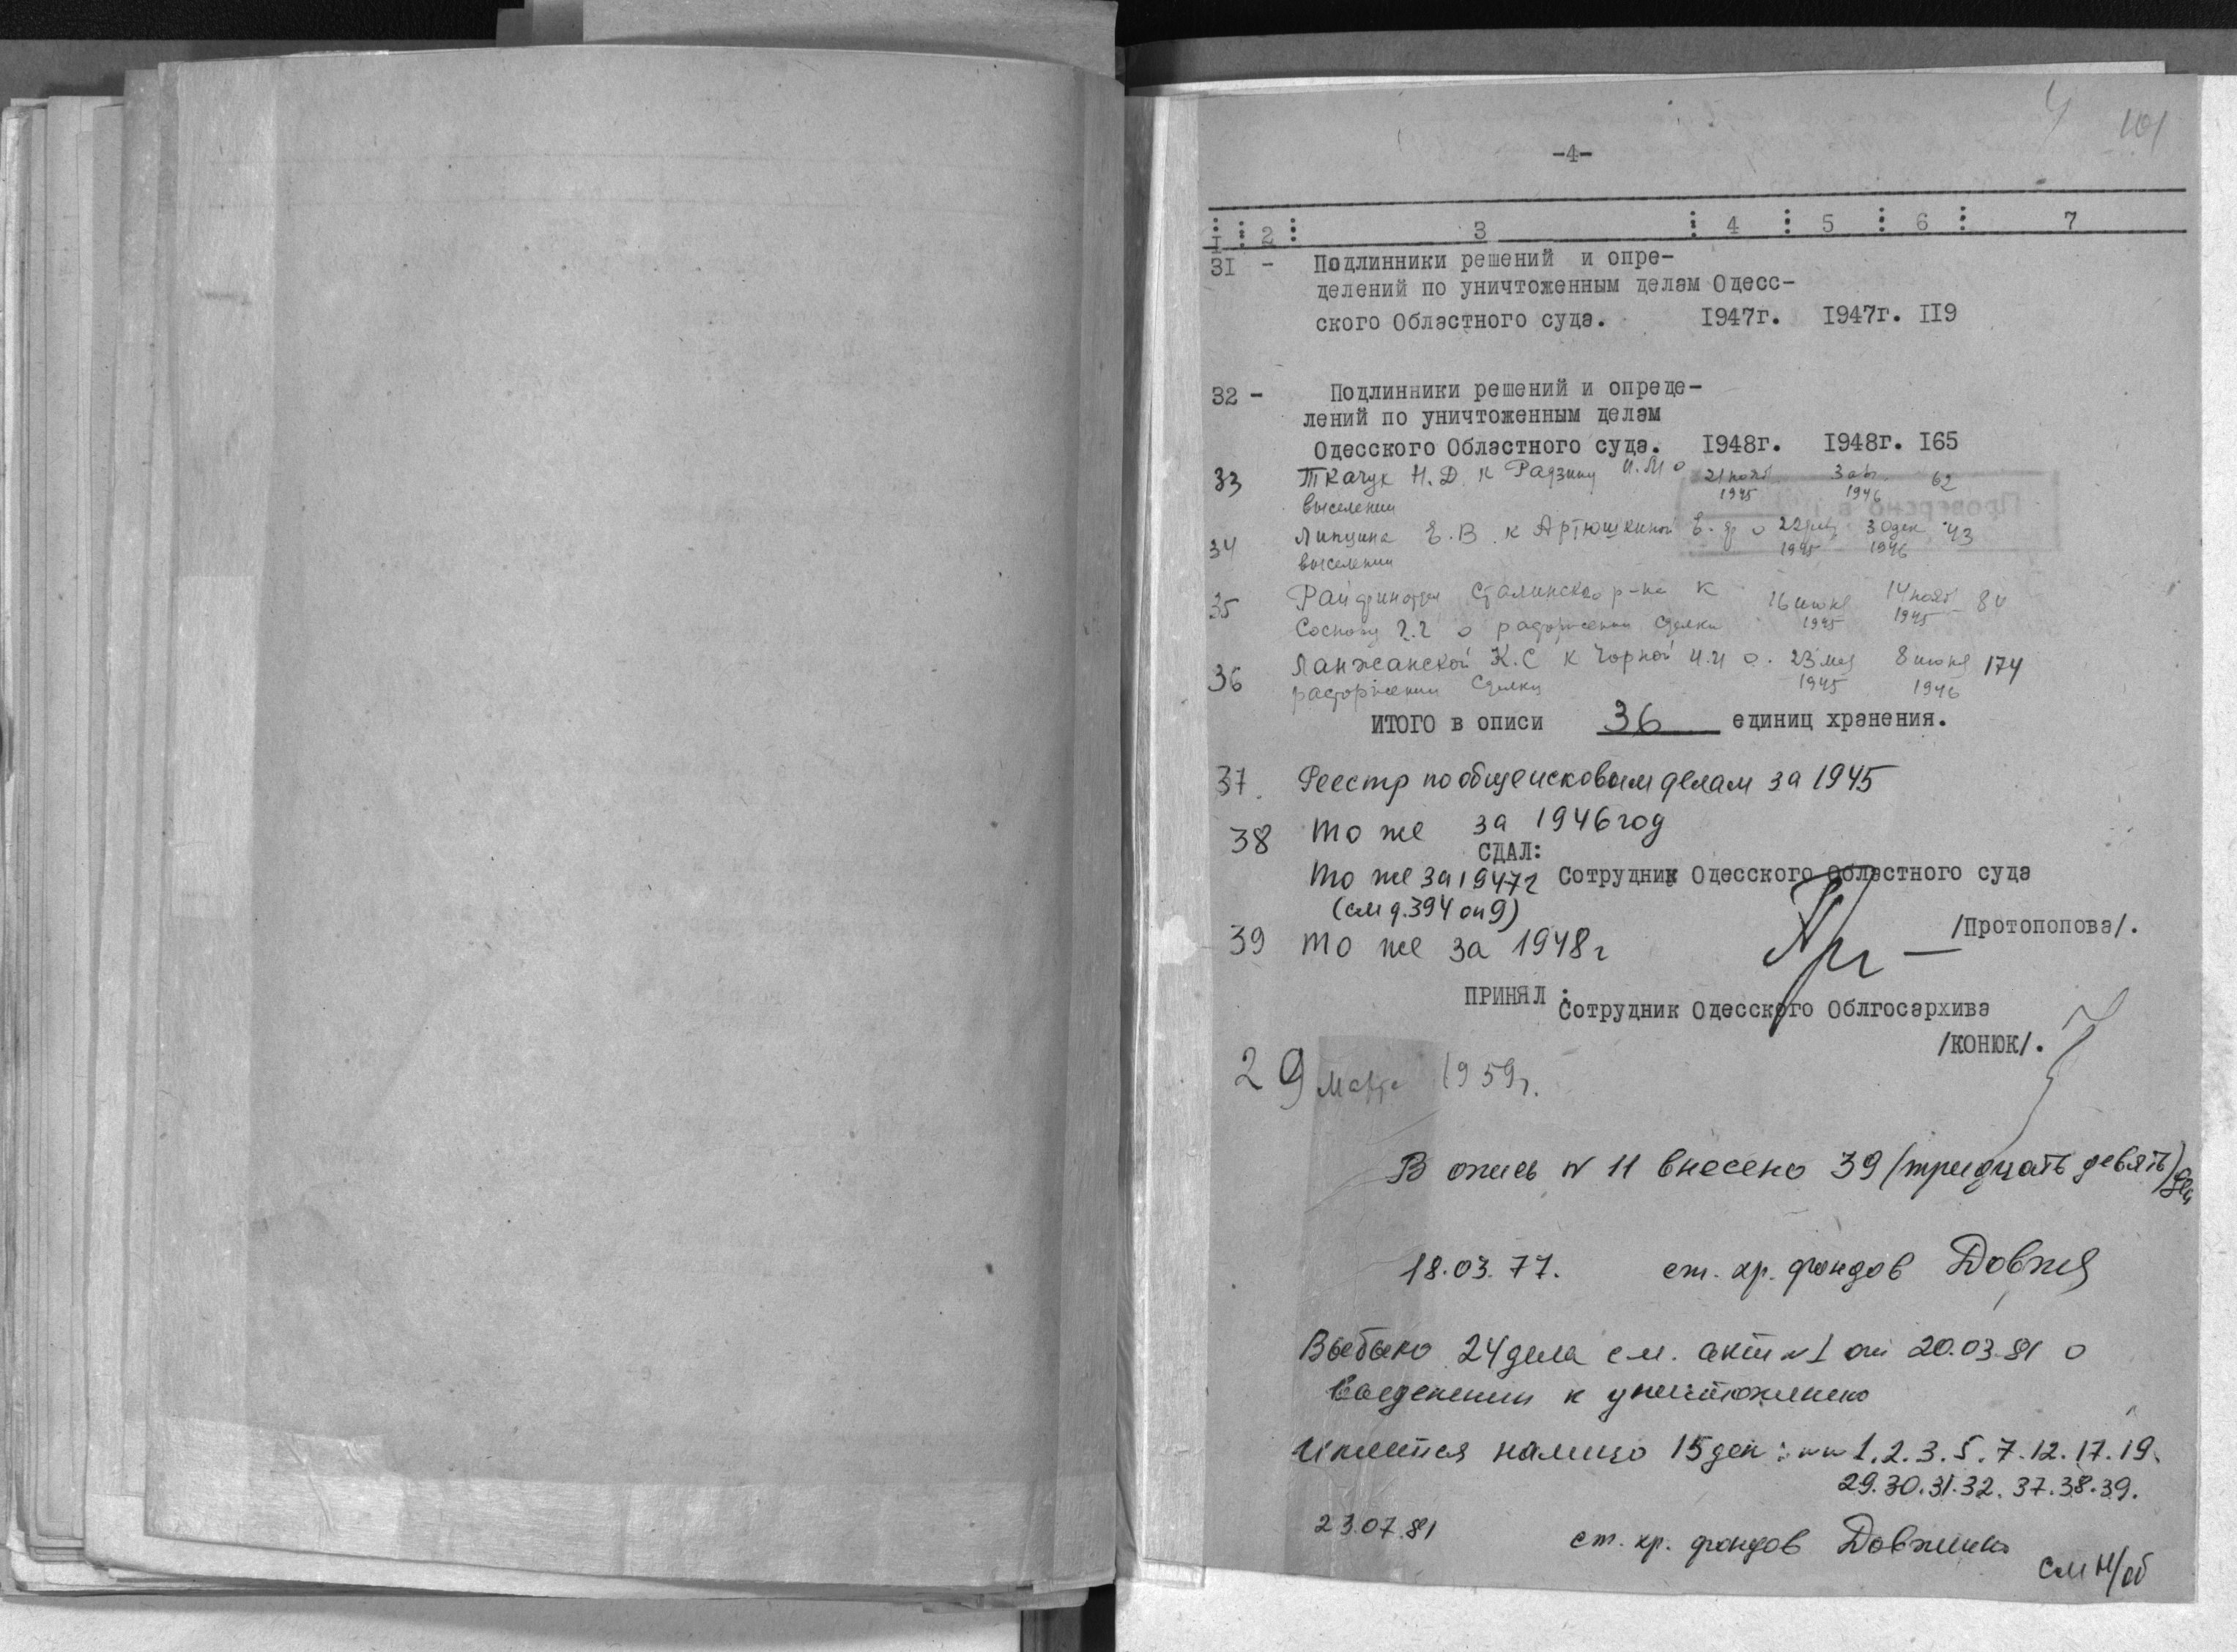 4
101
-4-
1 : 2 : 3 : 4 : 5 : 6 : 7
31 - Подлинники решений и опре-
делений по уничтоженным делам Одесс-
ского Областного суда. 1947г. 1947г. 119
32 - Подлинники решений и опреде-
лений по уничтоженным делам
Одесского Областного суда. 1948г. 1948г. 165
33 Ткачук Н.Д. к Радзину И.М о 21 нояб 1945 1946 62
выселении
34 Липцина Е.В. к Артюшкиной о 1945 30 дек 1946 43
выселении
35 Райфинотдел Сталинского р-на к 16 июня 1945 14 нояб 1945 84
Соснову Г.Г о расторжении сделки
36 Ланжанской К.С к Чорной И.И о 23 мая 1945 8 июня 1946 174
расторжении сделки
ИТОГО в описи 36 единиц хранения.
37. Реестр по общеисковым делам за 1945
38 то же за 1946 год
СДАЛ:
то же за 1947г Сотрудник Одесского Областного суда
(см д. 394 оп 9)
/Протопопова/.
39 то же за 1948г
ПРИНЯЛ:
Сотрудник Одесского Облгосархива
/КОНЮК/.
29 марта 1959г.
В опись N 11 внесено 39 (тридцать девять) дел
18.03.77. ст. хр. фондов
Выбыло 24 дела см. акт N 1 от 20.03.81 о
выделении к уничтожению
Имеется налицо 15 дел: NN 1.2.3.5.7.12.17.19.
29.30.31.32.37.38.39.
23.07.81 ст. хр. фондов
см н/об
Проверено в